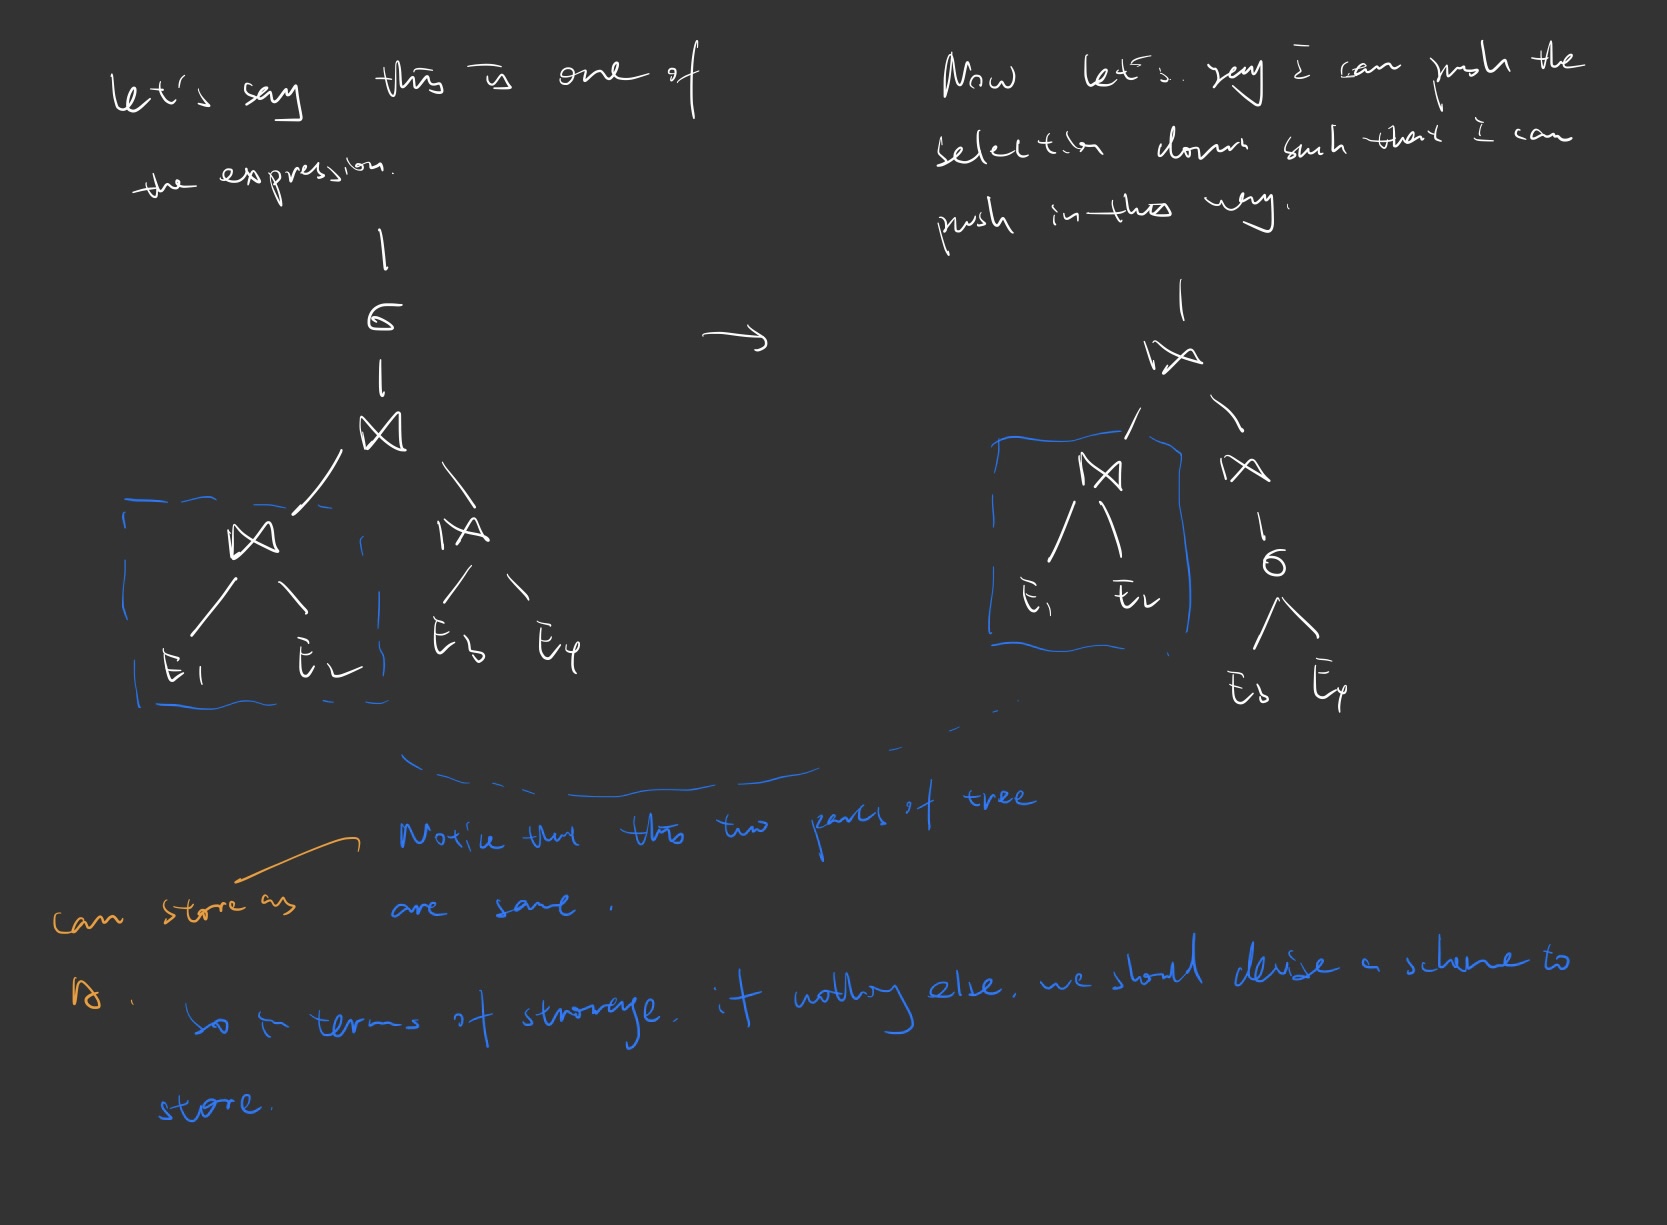 let's say this is one of
the expression.
σ
⋈
⋈ ⋈
E1 E2 E3 E4
Now let's say I can push the
selection down such that I can
push in this way.
→
⋈
⋈ ⋈
σ
E1 E2
E3 E4
Notice that this two parts of tree
are same.
can store as
so in terms of storage. if nothing else. we should devise a scheme to
store.